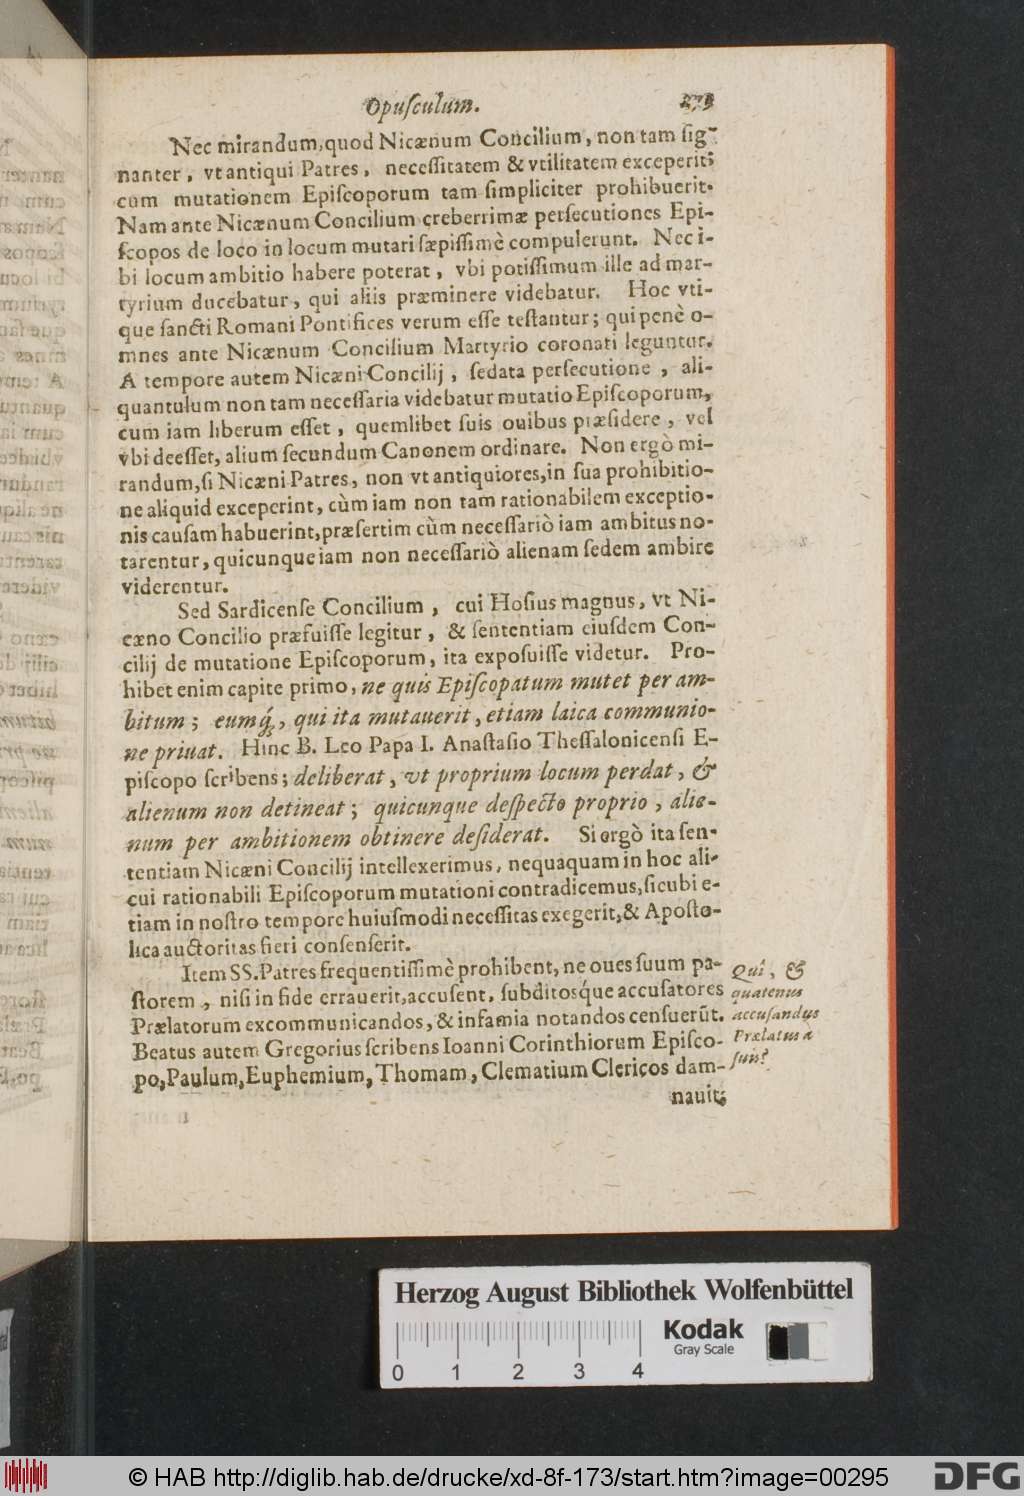 Opuſculum. 273
Nec mirandum, quod Nicænum Concilium, non tam ſig-
nanter, vt antiqui Patres, neceſſitatem & vtilitatem exceperit;
cum mutationem Epiſcoporum tam ſimpliciter prohibuerit.
Nam ante Nicænum Concilium creberrimæ perſecutiones Epi-
ſcopos de loco in locum mutari ſæpiſſimè compulerunt. Nec i-
bi locum ambitio habere poterat, vbi potiſſimum ille ad mar-
tyrium ducebatur, qui aliis præminere videbatur. Hoc vti-
que ſancti Romani Pontifices verum eſſe teſtantur; qui penè o-
mnes ante Nicænum Concilium Martyrio coronati leguntur.
A tempore autem Nicæni Concilij, ſedata perſecutione, ali-
quantulum non tam neceſſaria videbatur mutatio Epiſcoporum,
cum iam liberum eſſet, quemlibet ſuis ouibus præſidere, vel
vbi deeſſet, alium ſecundum Canonem ordinare. Non ergò mi-
randum, ſi Nicæni Patres, non vt antiquiores, in ſua prohibitio-
ne aliquid exceperint, cùm iam non tam rationabilem exceptio-
nis cauſam habuerint, præſertim cùm neceſſariò iam ambitus no-
tarentur, quicunque iam non neceſſariò alienam ſedem ambire
viderentur.
Sed Sardicenſe Concilium, cui Hoſius magnus, vt Ni-
cæno Concilio præfuiſſe legitur, & ſententiam eiuſdem Con-
cilij de mutatione Epiſcoporum, ita expoſuiſſe videtur. Pro-
hibet enim capite primo, ne quis Epiſcopatum mutet per am-
bitum; eumq́;, qui ita mutauerit, etiam laica communio-
ne priuat. Hinc B. Leo Papa I. Anaſtaſio Theſſalonicenſi E-
piſcopo ſcribens; deliberat, vt proprium locum perdat, &
alienum non detineat; quicunque deſpecto proprio, alie-
num per ambitionem obtinere deſiderat. Si ergò ita ſen-
tentiam Nicæni Concilij intellexerimus, nequaquam in hoc ali-
cui rationabili Epiſcoporum mutationi contradicemus, ſicubi e-
tiam in noſtro tempore huiuſmodi neceſſitas exegerit, & Apoſto-
lica auctoritas fieri conſenſerit.
Item SS. Patres frequentiſſimè prohibent, ne oues ſuum pa-
ſtorem, niſi in fide errauerit, accuſent, ſubditosq́ue accuſatores
Prælatorum excommunicandos, & infamia notandos cenſuerūt.
Beatus autem Gregorius ſcribens Ioanni Corinthiorum Epiſco-
po, Paulum, Euphemium, Thomam, Clematium Clericos dam-
nauit;
Qui, &
quatenus
accuſandus
Prælatus à
Herzog August Bibliothek Wolfenbüttel
Kodak
Gray Scale
0 1 2 3 4
© HAB http://diglib.hab.de/drucke/xd-8f-173/start.htm?image=00295
DFG